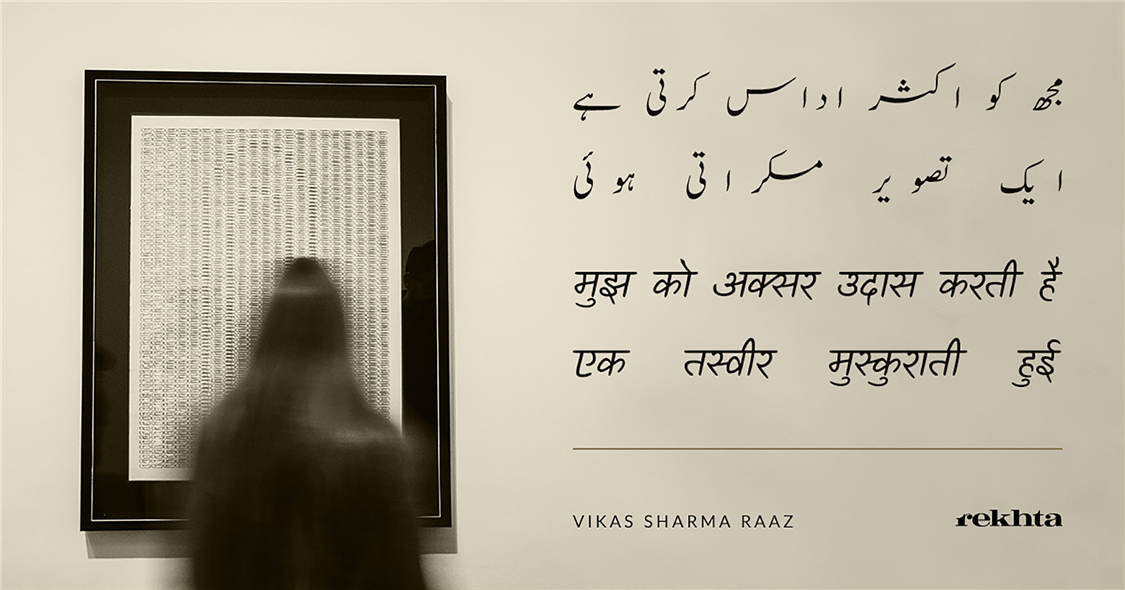 مجھ کو اکثر اداس کرتی ہے
ایک تصویر مسکراتی ہوئی
मुझ को अक्सर उदास करती है
एक तस्वीर मुस्कुराती हुई
VIKAS SHARMA RAAZ
rekhta